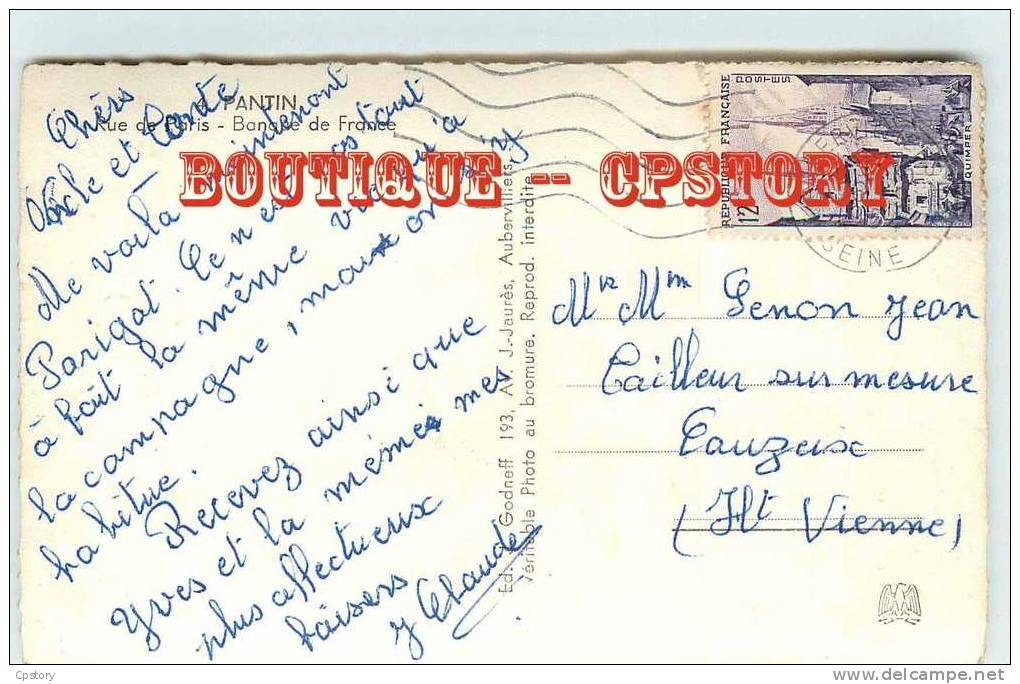 4. PANTIN
Rue de Paris - Banque de France
Chers
Oncle et Tante
Me voilà maintenant
Parigot. Ce n'est pas tout
à fait la même vie qu'à
la campagne, mais on s'y
habitue.
Recevez ainsi que
Yves et la mémé mes
plus affectueux
baisers
J Claude
BOUTIQUE -- CPSTORY
Ed. Godneff 193, Av. J.-Jaurès, Aubervilliers.
Véritable Photo au bromure. Reprod. interdite
RÉPUBLIQUE FRANÇAISE
POSTES
QUIMPER
12F
SEINE
Mr Mme Genon Jean
Tailleur sur mesure
Tauzeix
(Ht Vienne)
Cpstory
delcampe.net